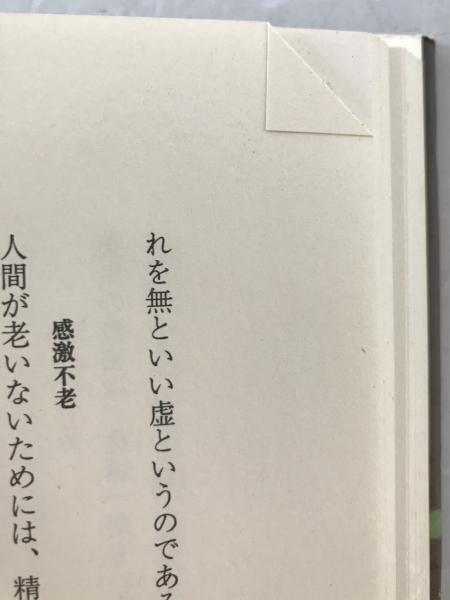 れを無といい虚というのである
感激不老
人間が老いないためには、精